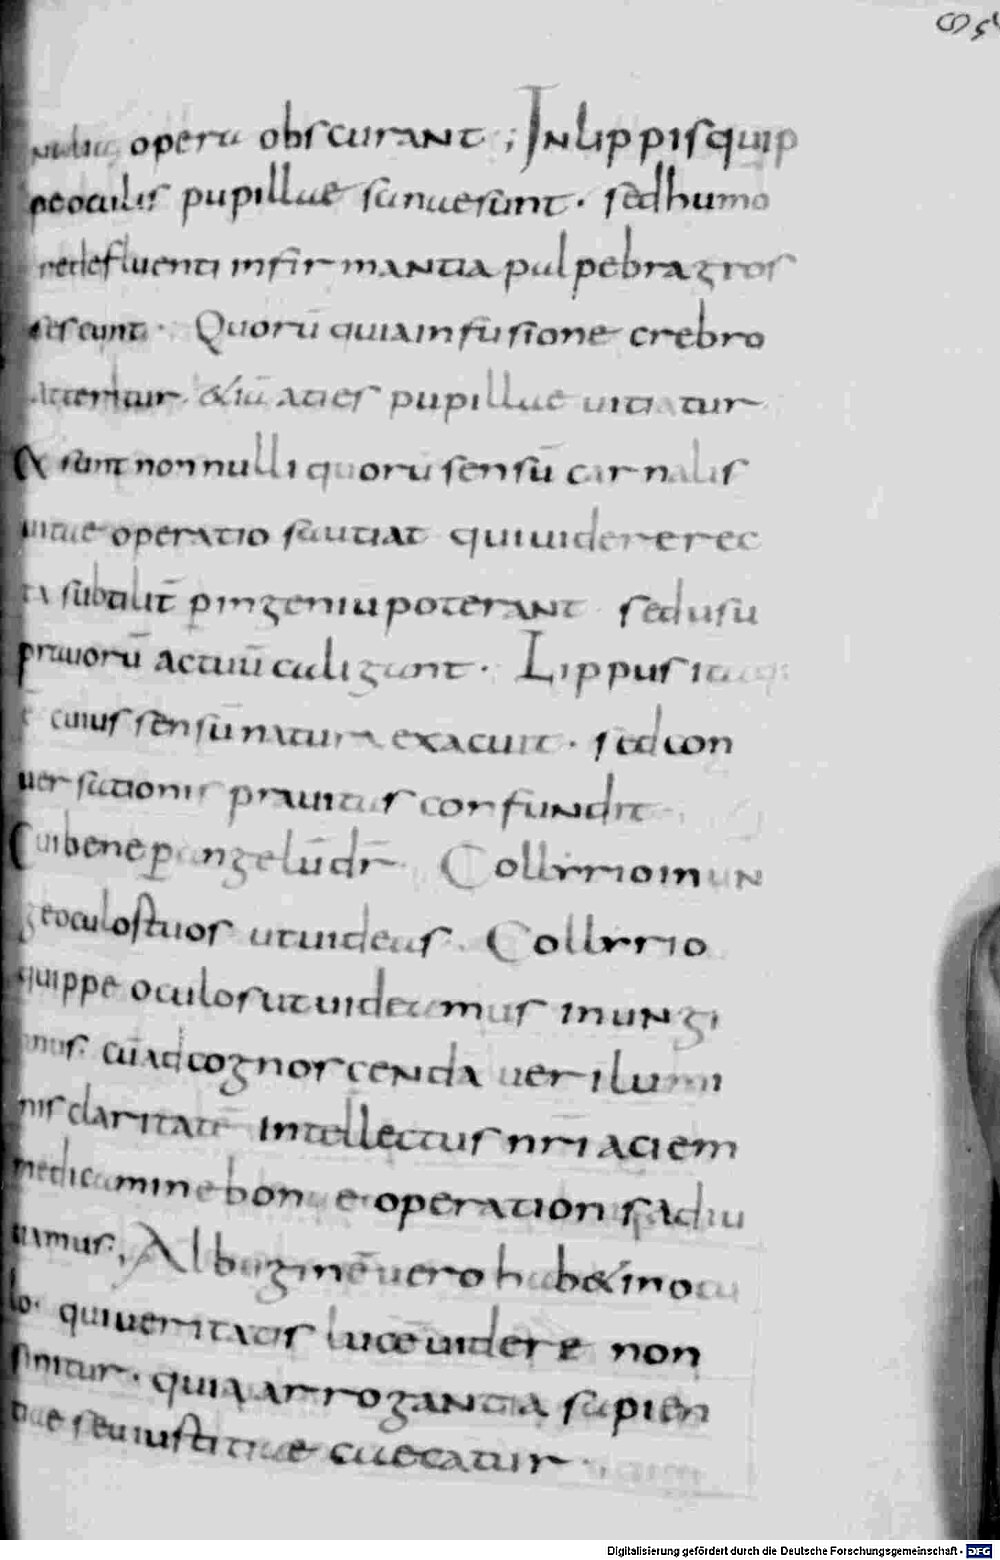 opera obscurant; In lippis quip
pe oculis pupillae sanae sunt. sed humo
re defluenti infirmantia palpebrae gros
sescunt. Quorū quia infusione crebro
atteritur &iā acies pupillae uitiatur
& sunt nonnulli quorū sensū carnalis
uitae operatio sauciat qui uidere rec
ta subtilit̄ p ingeniū poterant sed usu
prauorū actuū caligant. Lippus itaq;
ē cuius sensū natura exacuit. sed con
uersationis prauitas confundit
Cui bene p angelū dr̄. Collirio inun
ge oculos tuos ut uideas. Collirio
quippe oculos ut uideamus inungi
mus. cū ad cognoscenda ueri lumi
nis claritatē intellectus nr̄i aciem
medicamine bonae operationis adiu
uamus; Albuginē uero hab& in ocu
lo. qui ueritatis lucē uidere non
sinitur. quia arrogantia sapien
tiae seu iustitiae caecatur.
Digitalisierung gefördert durch die Deutsche Forschungsgemeinschaft - DFG